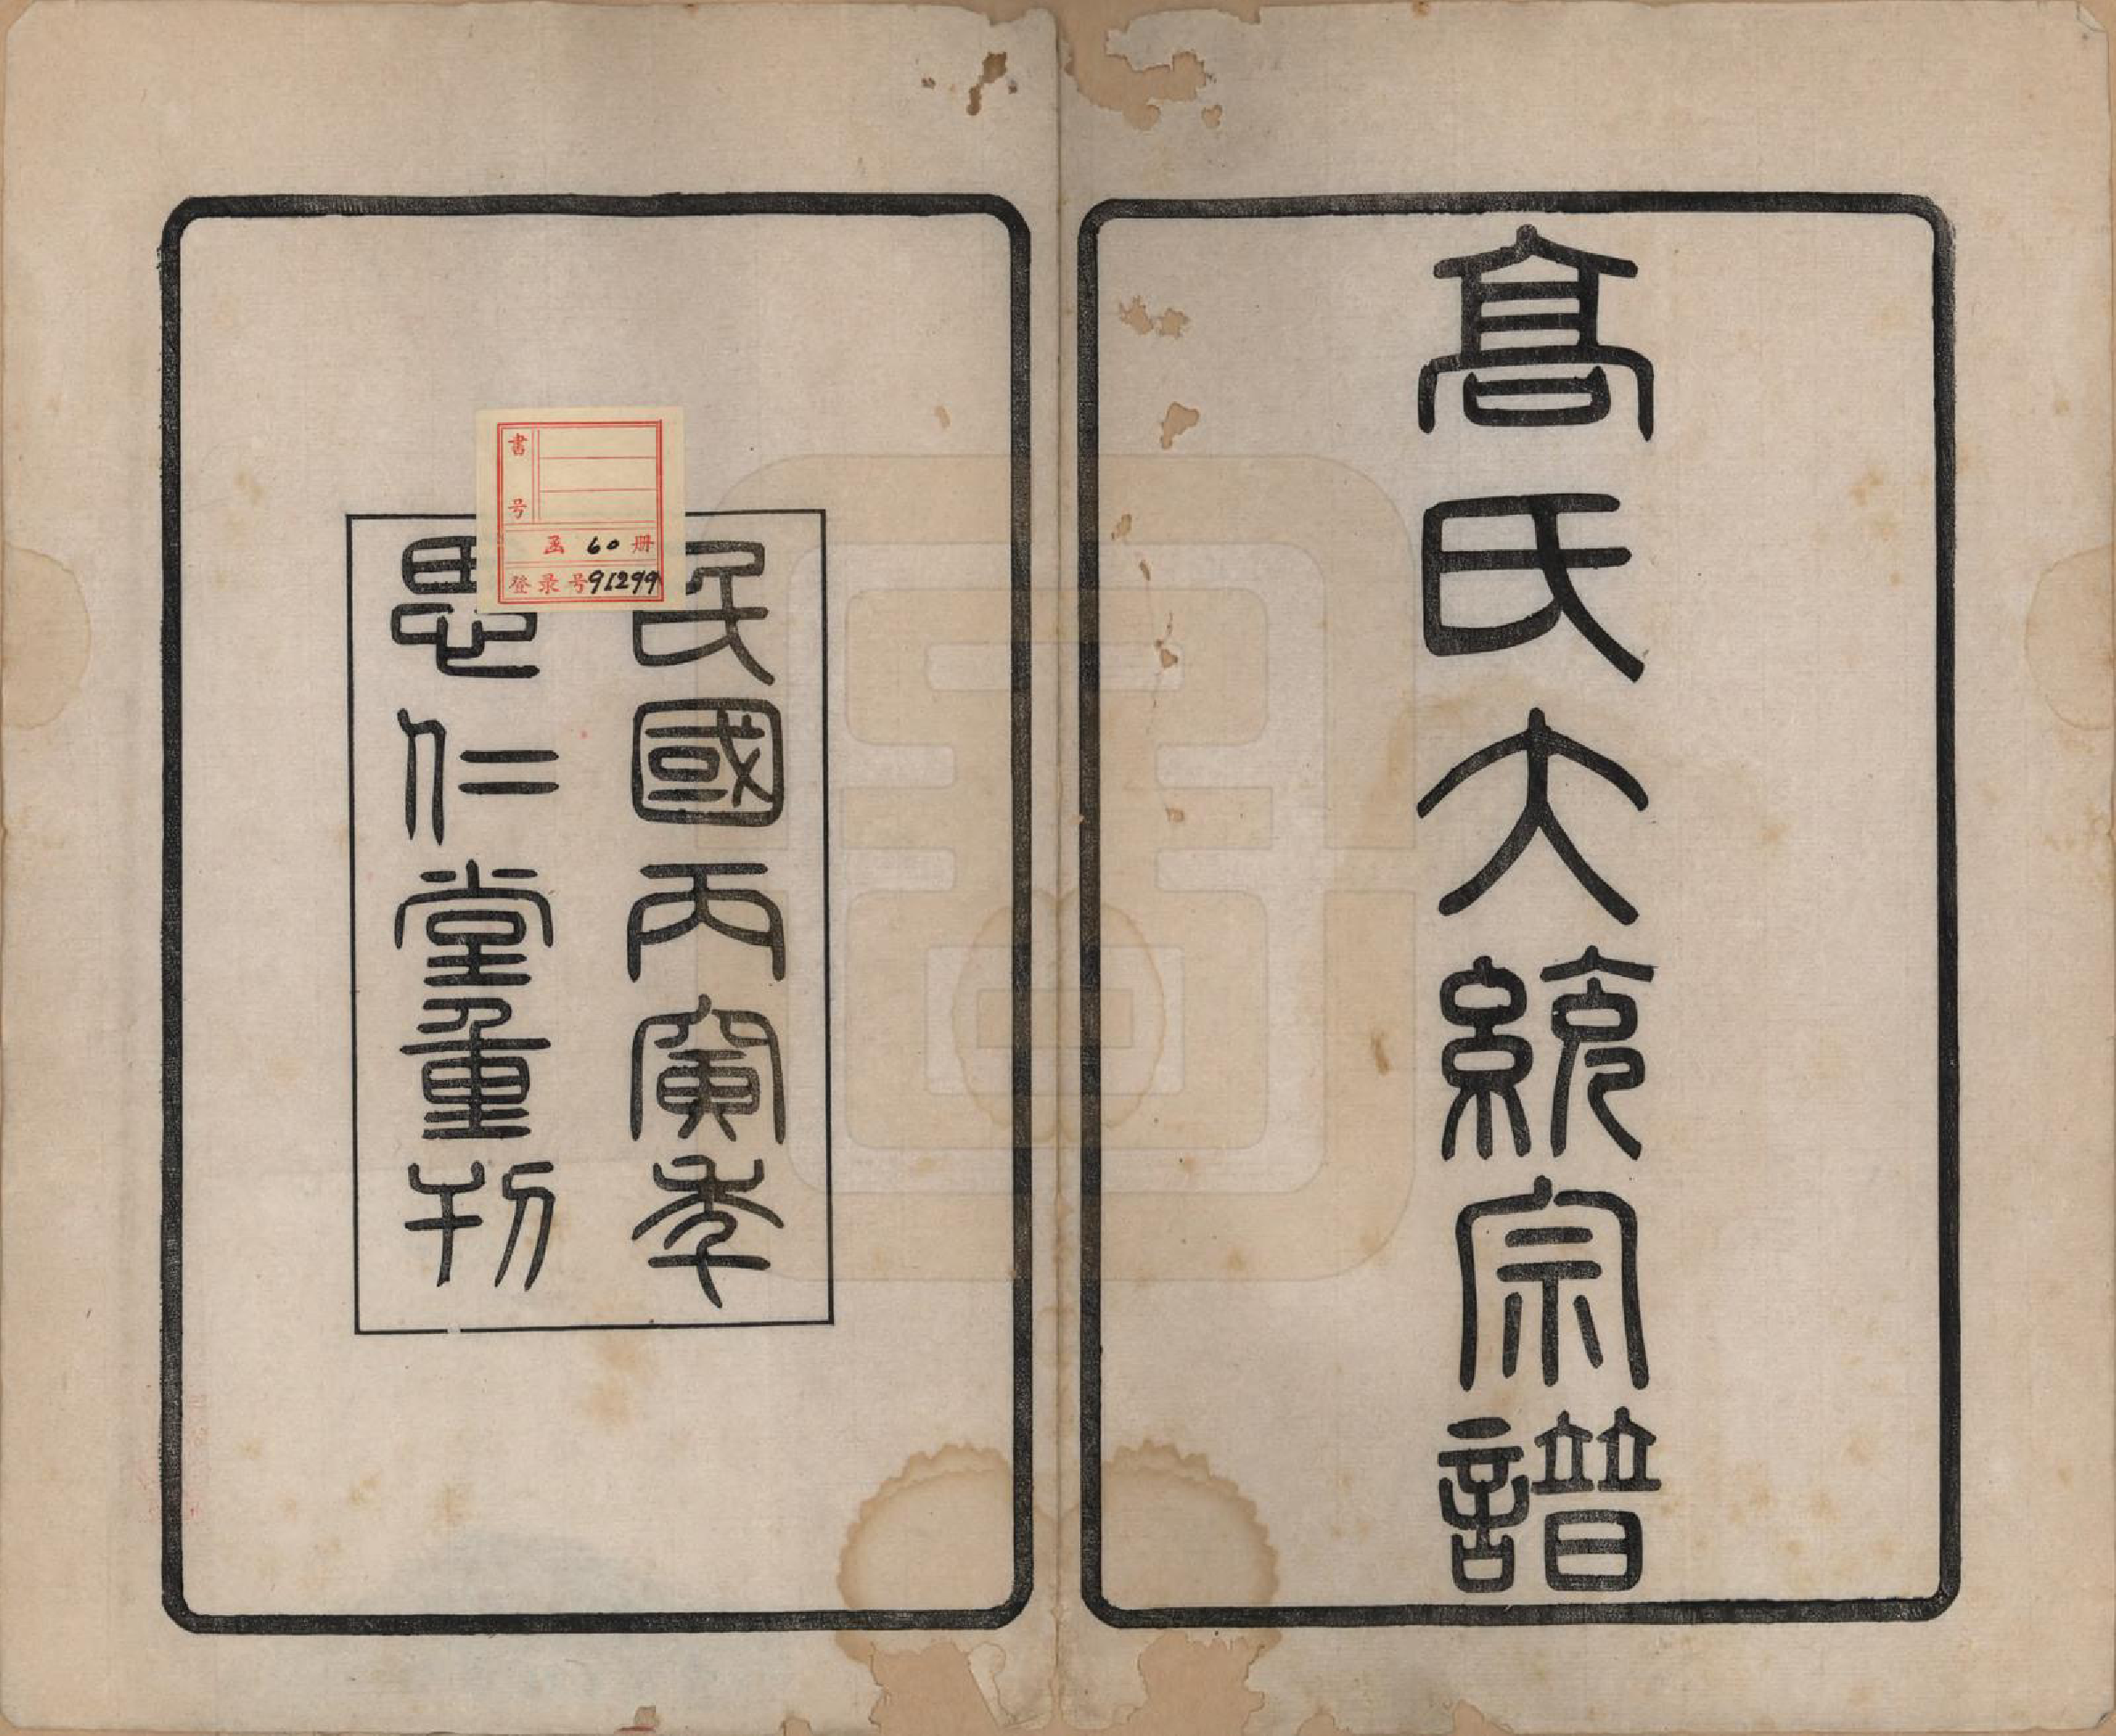 高氏大統宗譜
民國丙寅年
思仁堂重刊
書号
函 60 册
登录号91299